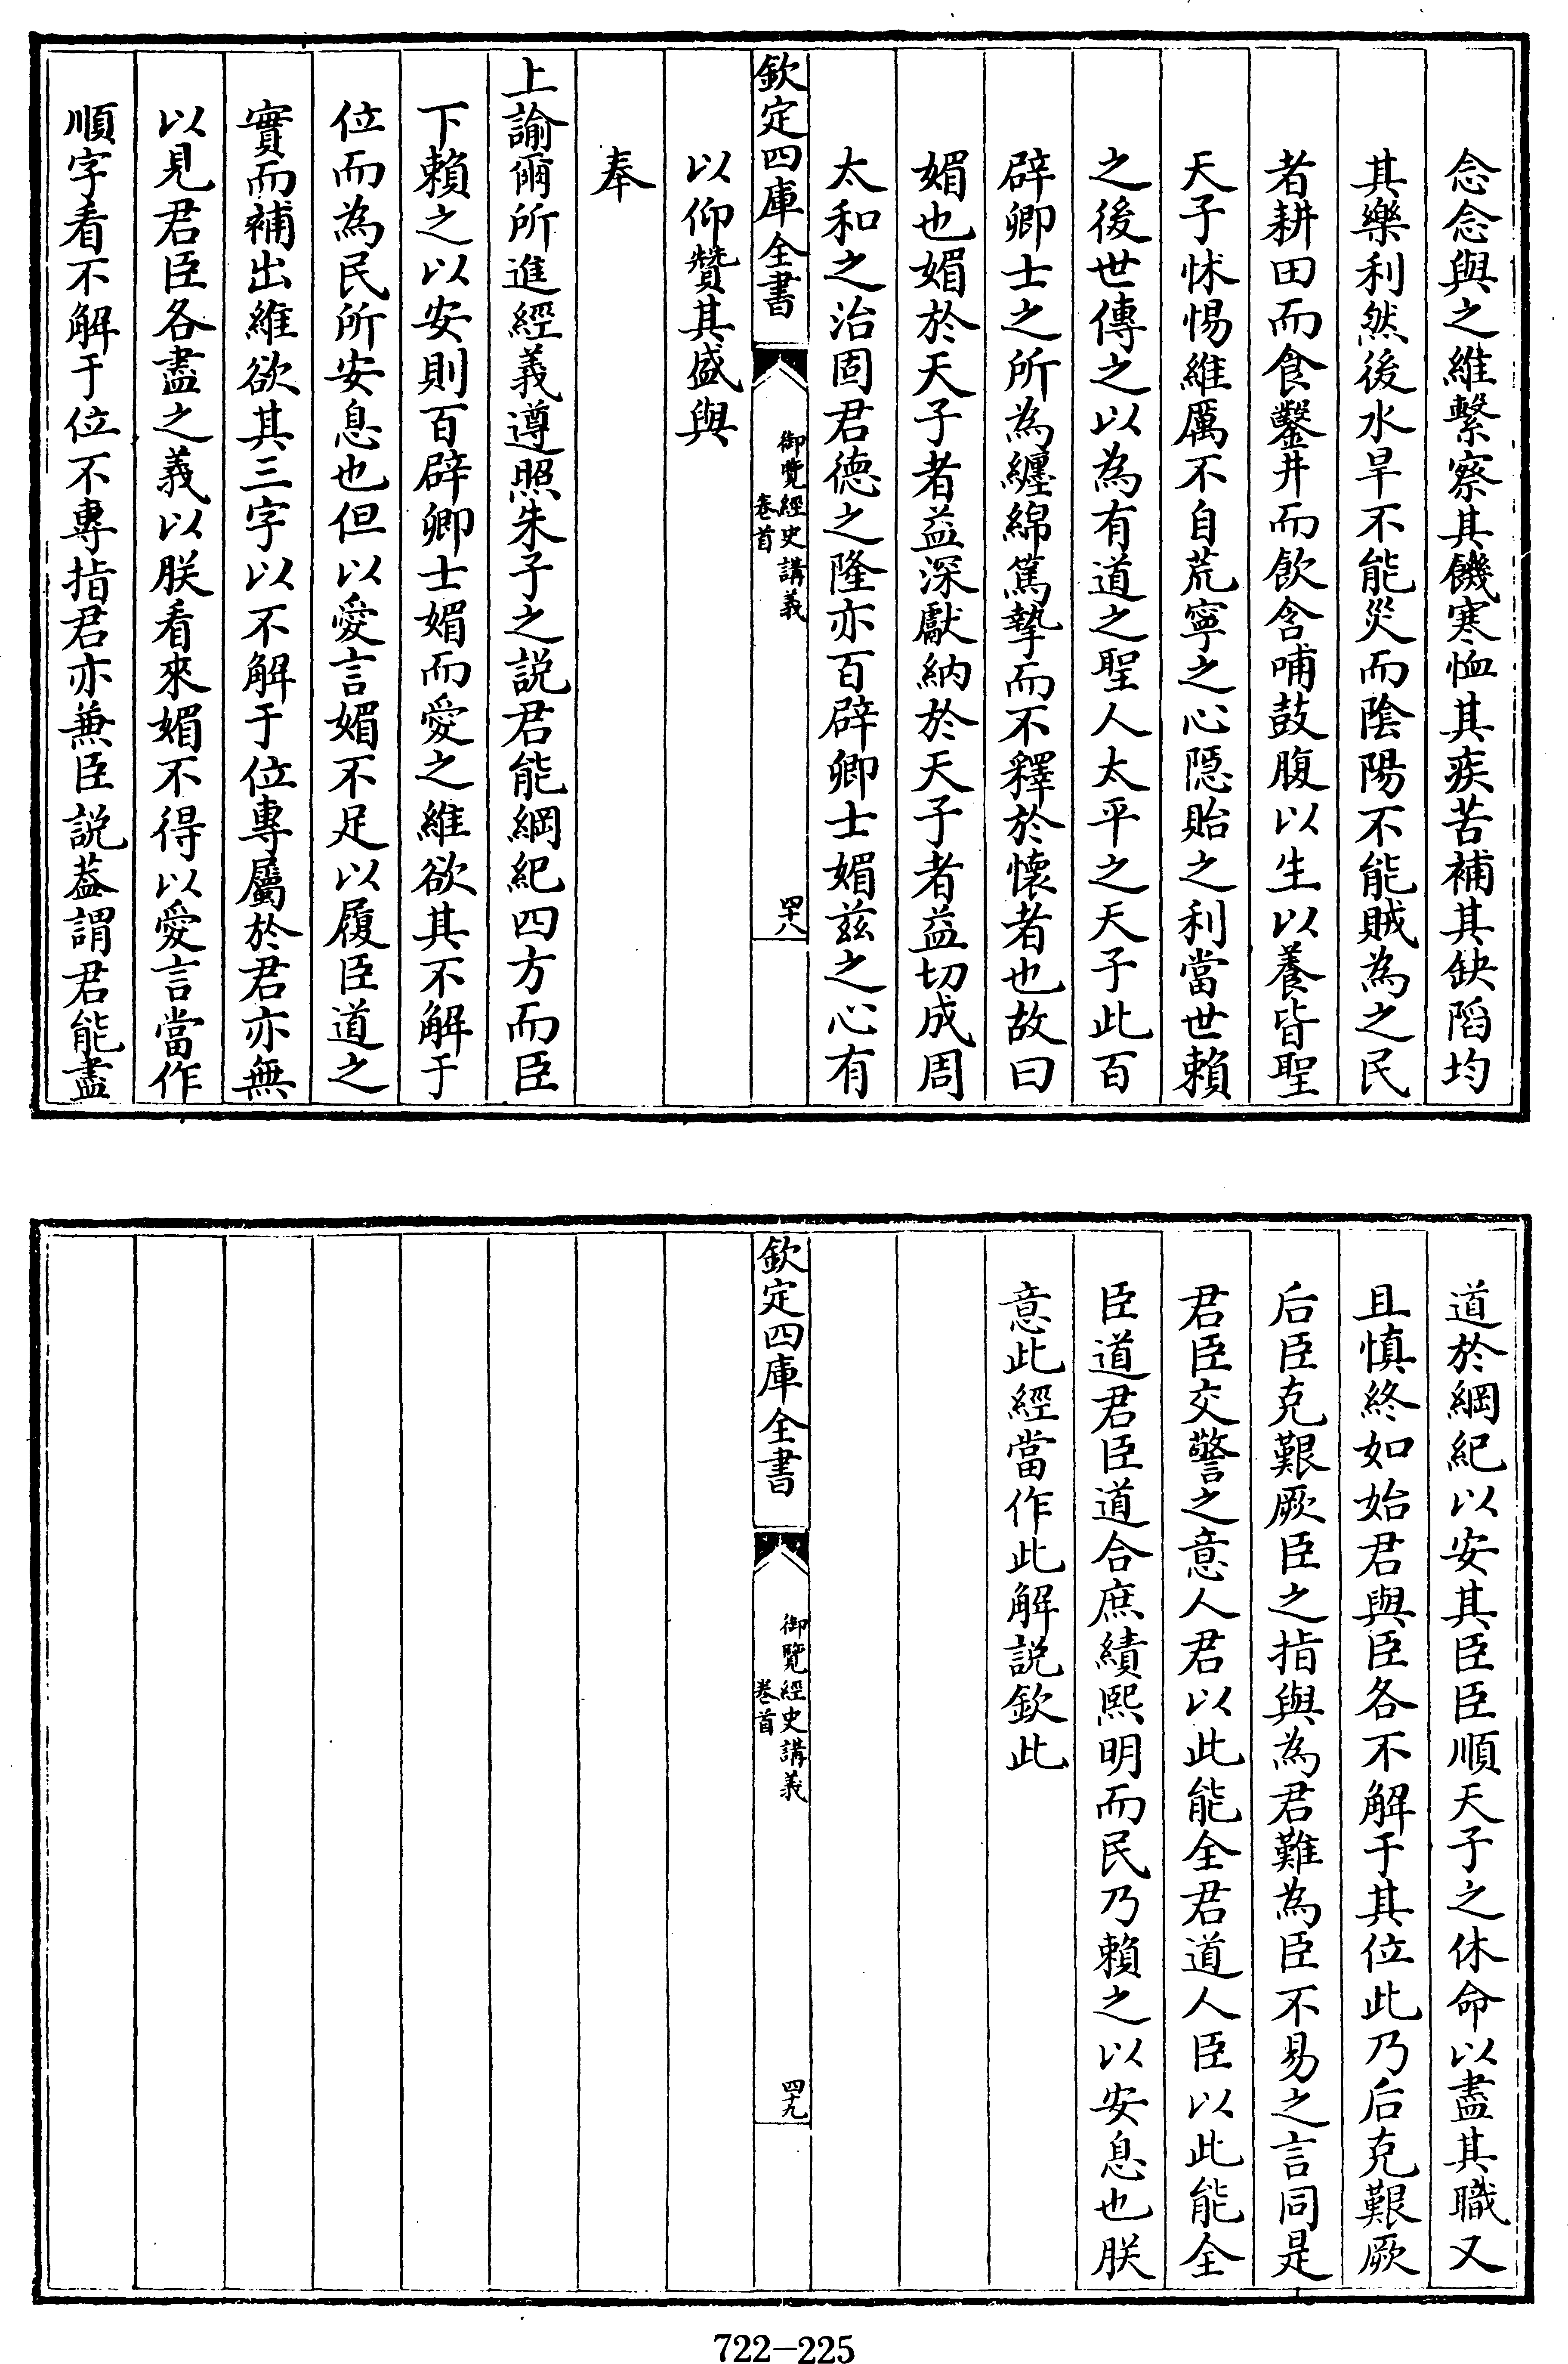 念念與之維繫察其饑寒恤其疾苦補其缺䧟均
其樂利然後水旱不能災而陰陽不能賊為之民
者耕田而食鑿井而飲含哺鼓腹以生以養皆聖
天子怵惕維厲不自荒寧之心隠貽之利當世賴
之後世傳之以為有道之聖人太平之天子此百
辟卿士之所為纏綿篤摯而不釋於懷者也故曰
媚也媚於天子者益深獻納於天子者益切成周
太和之治固君德之隆亦百辟卿士媚兹之心有
欽定四庫全書
御覽經史講義
卷首
四十八
以仰贊其盛與
奉
上諭爾所進經義遵照朱子之説君能綱紀四方而臣
下賴之以安則百辟卿士媚而愛之維欲其不解于
位而為民所安息也但以愛言媚不足以履臣道之
實而補出維欲其三字以不解于位專屬於君亦無
以見君臣各盡之義以朕看來媚不得以愛言當作
順字看不解于位不專指君亦兼臣説葢謂君能盡
道於綱紀以安其臣臣順天子之休命以盡其職又
且慎終如始君與臣各不解于其位此乃后克艱厥
后臣克艱厥臣之指與為君難為臣不易之言同是
君臣交警之意人君以此能全君道人臣以此能全
臣道君臣道合庶績熙明而民乃賴之以安息也朕
意此經當作此解説欽此
欽定四庫全書
御覽經史講義
卷首
四十九
722-225